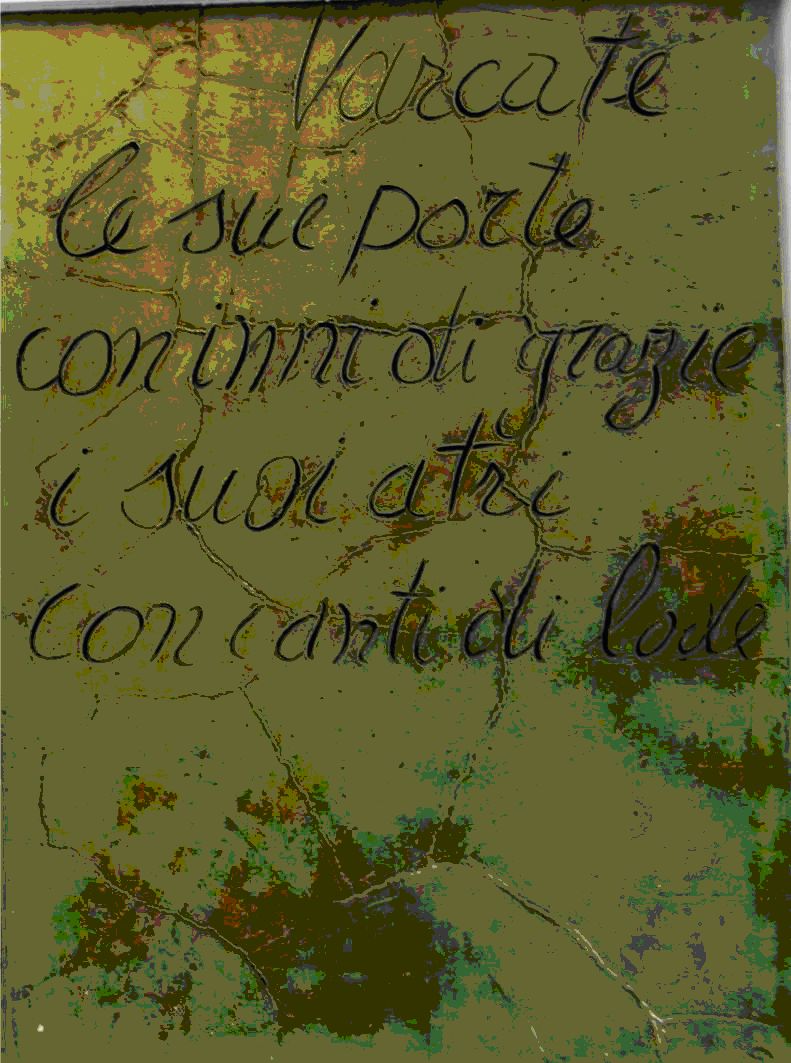 Varcate
le sue porte
con inni di grazie
i suoi atri
con canti di lode